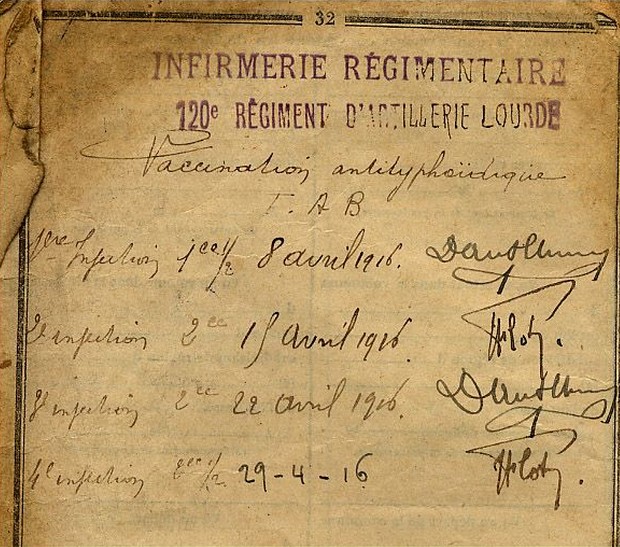 32
INFIRMERIE RÉGIMENTAIRE
120e RÉGIMENT D'ARTILLERIE LOURDE
Vaccination antityphoïdique
T. A B
1ère Injection 1cc 1/2 8 avril 1916.
2e injection 2cc 15 avril 1916.
3e injection 2cc 22 avril 1916.
4e injection 2cc 1/2 29-4-16